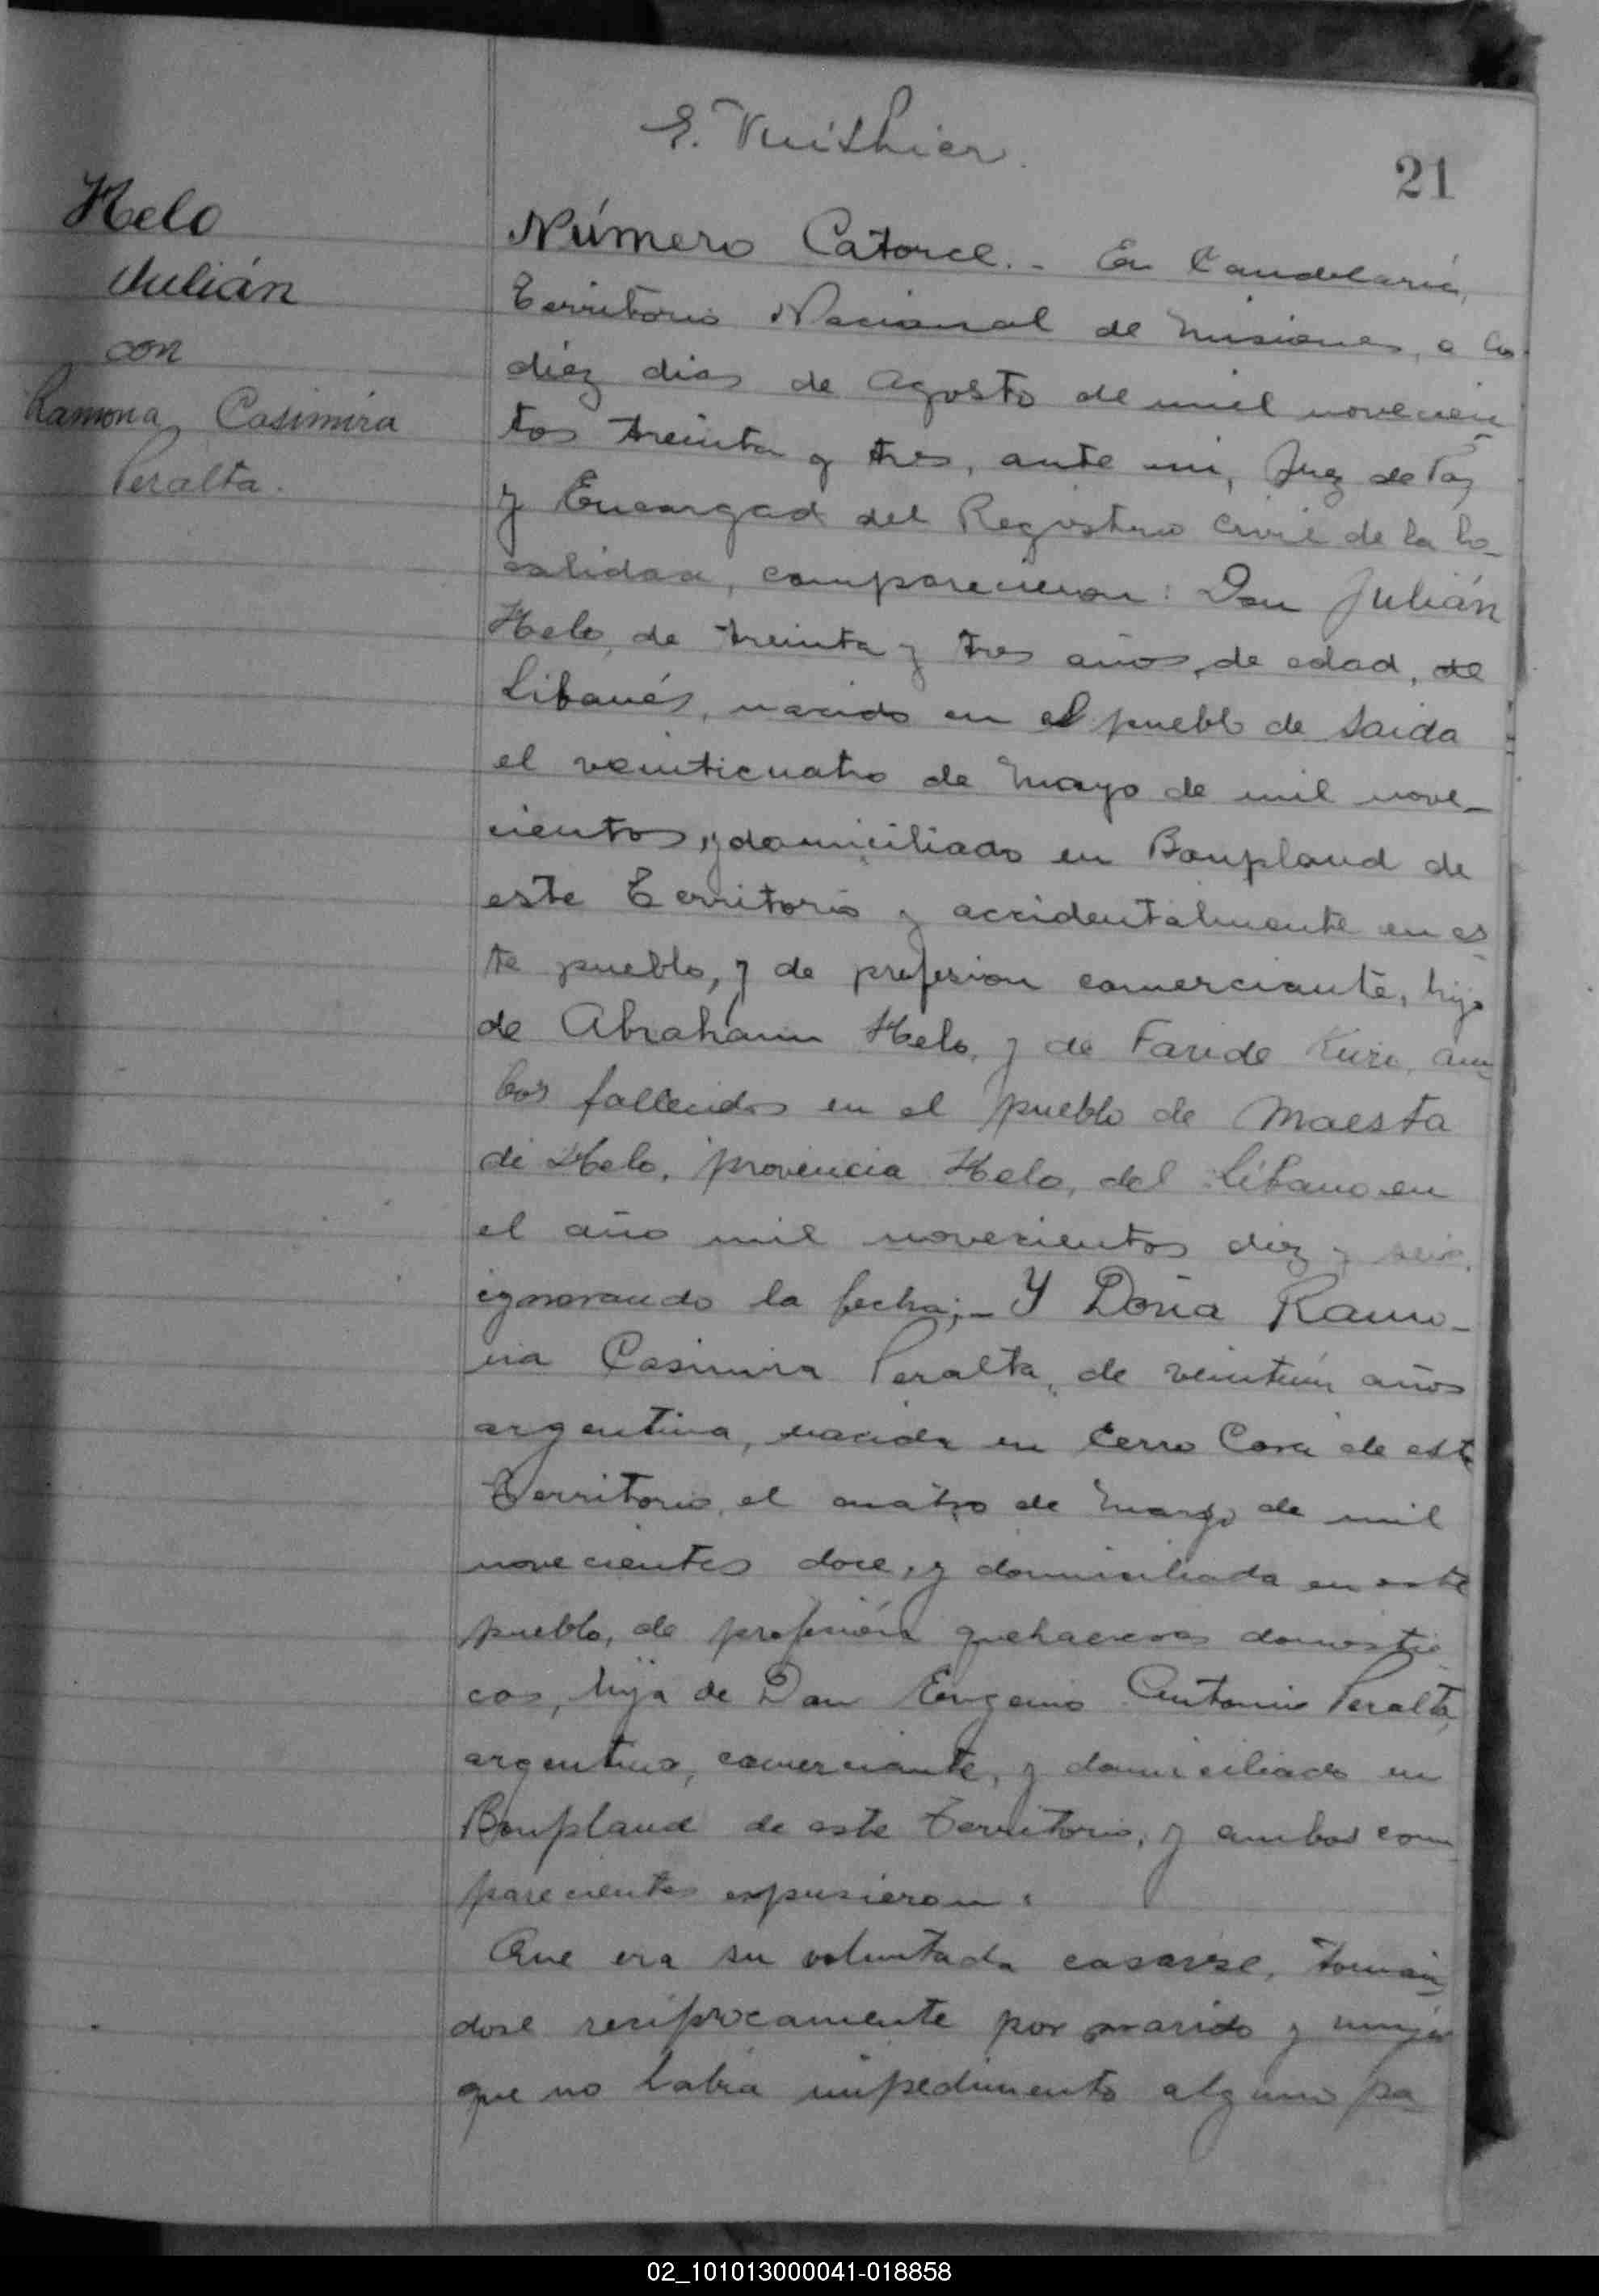 E. Vuithier.
21
Helo
Julián
con
Ramona Casimira
Peralta.
Número Catorce.- En Candelaria,
Territorio Nacional de Misiones, a los
diéz dias de Agosto de mil novecien
tos treinta y tres, ante mi, Juez de Paz
y Encargad del Registro Civil de la lo-
calidad, comparecieron: Don Julián
Helo, de treinta y tres años de edad, de
Libanés, nacido en el pueblo de Saida
el veinticuatro de Mayo de mil nove-
cientos, y domiciliado en Bonpland de
este Territorio y accidentalmente en es
te pueblo, y de profesion comerciante, hijo
de Abraham Helo, y de Faride Kuri, am
bos fallecidos en el pueblo de Maesta
de Helo, provincia Helo, del Líbano en
el año mil novecientos diez y seis,
ignorando la fecha;- Y Doña Ramo-
na Casimira Peralta, de veintiún años
argentina, nacida en Cerro Corá de este
Territorio, el cuatro de Marzo de mil
novecientos doce, y domiciliada en este
pueblo, de profesión quehaceres domesti
cos, hija de Don Eugenio Antonio Peralta,
argentino, comerciante, y domiciliado en
Bonpland de este Territorio, y ambos com
parecientes expusieron:
Que era su voluntada casarse, toman
dose reciprocamente por marido y mujer
que no habia impedimento alguno pa
02_101013000041-018858